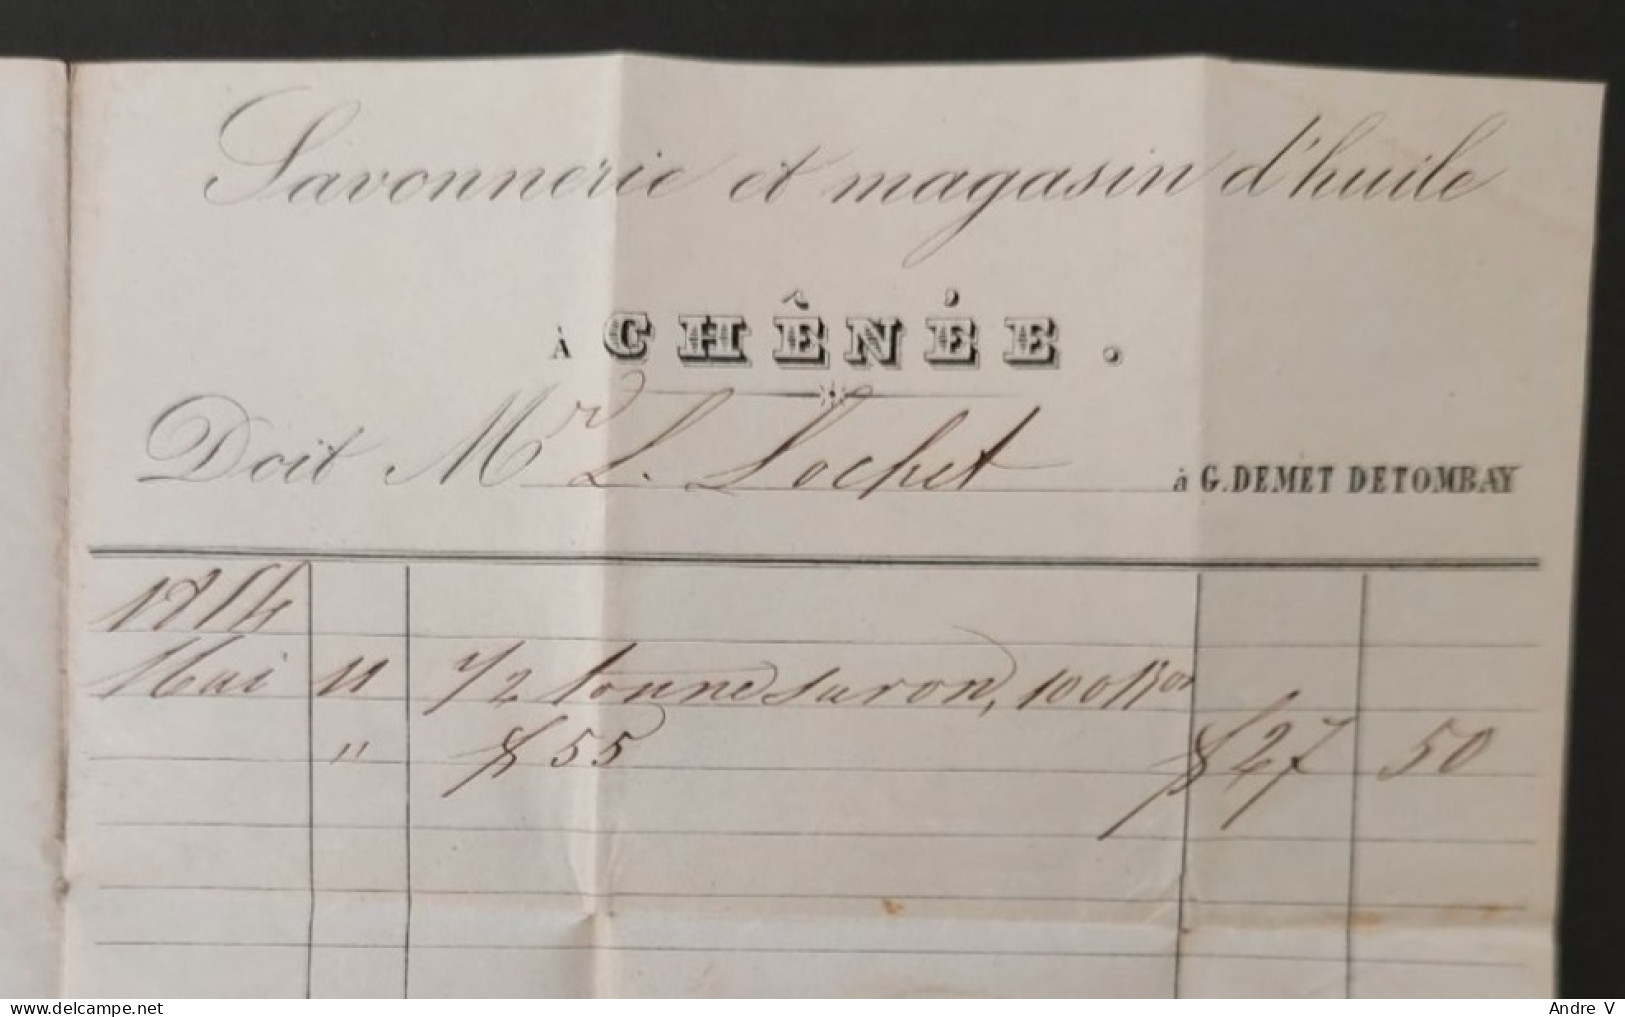 Savonnerie et magasin d'huile
À CHÊNÉE.
Doit Mr L. Lochet à G. DEMET DETOMBAY
1854
Mai 11 1/2 tonne savon, 100 Kos
" 55 27 50
delcampe.net
Andre V